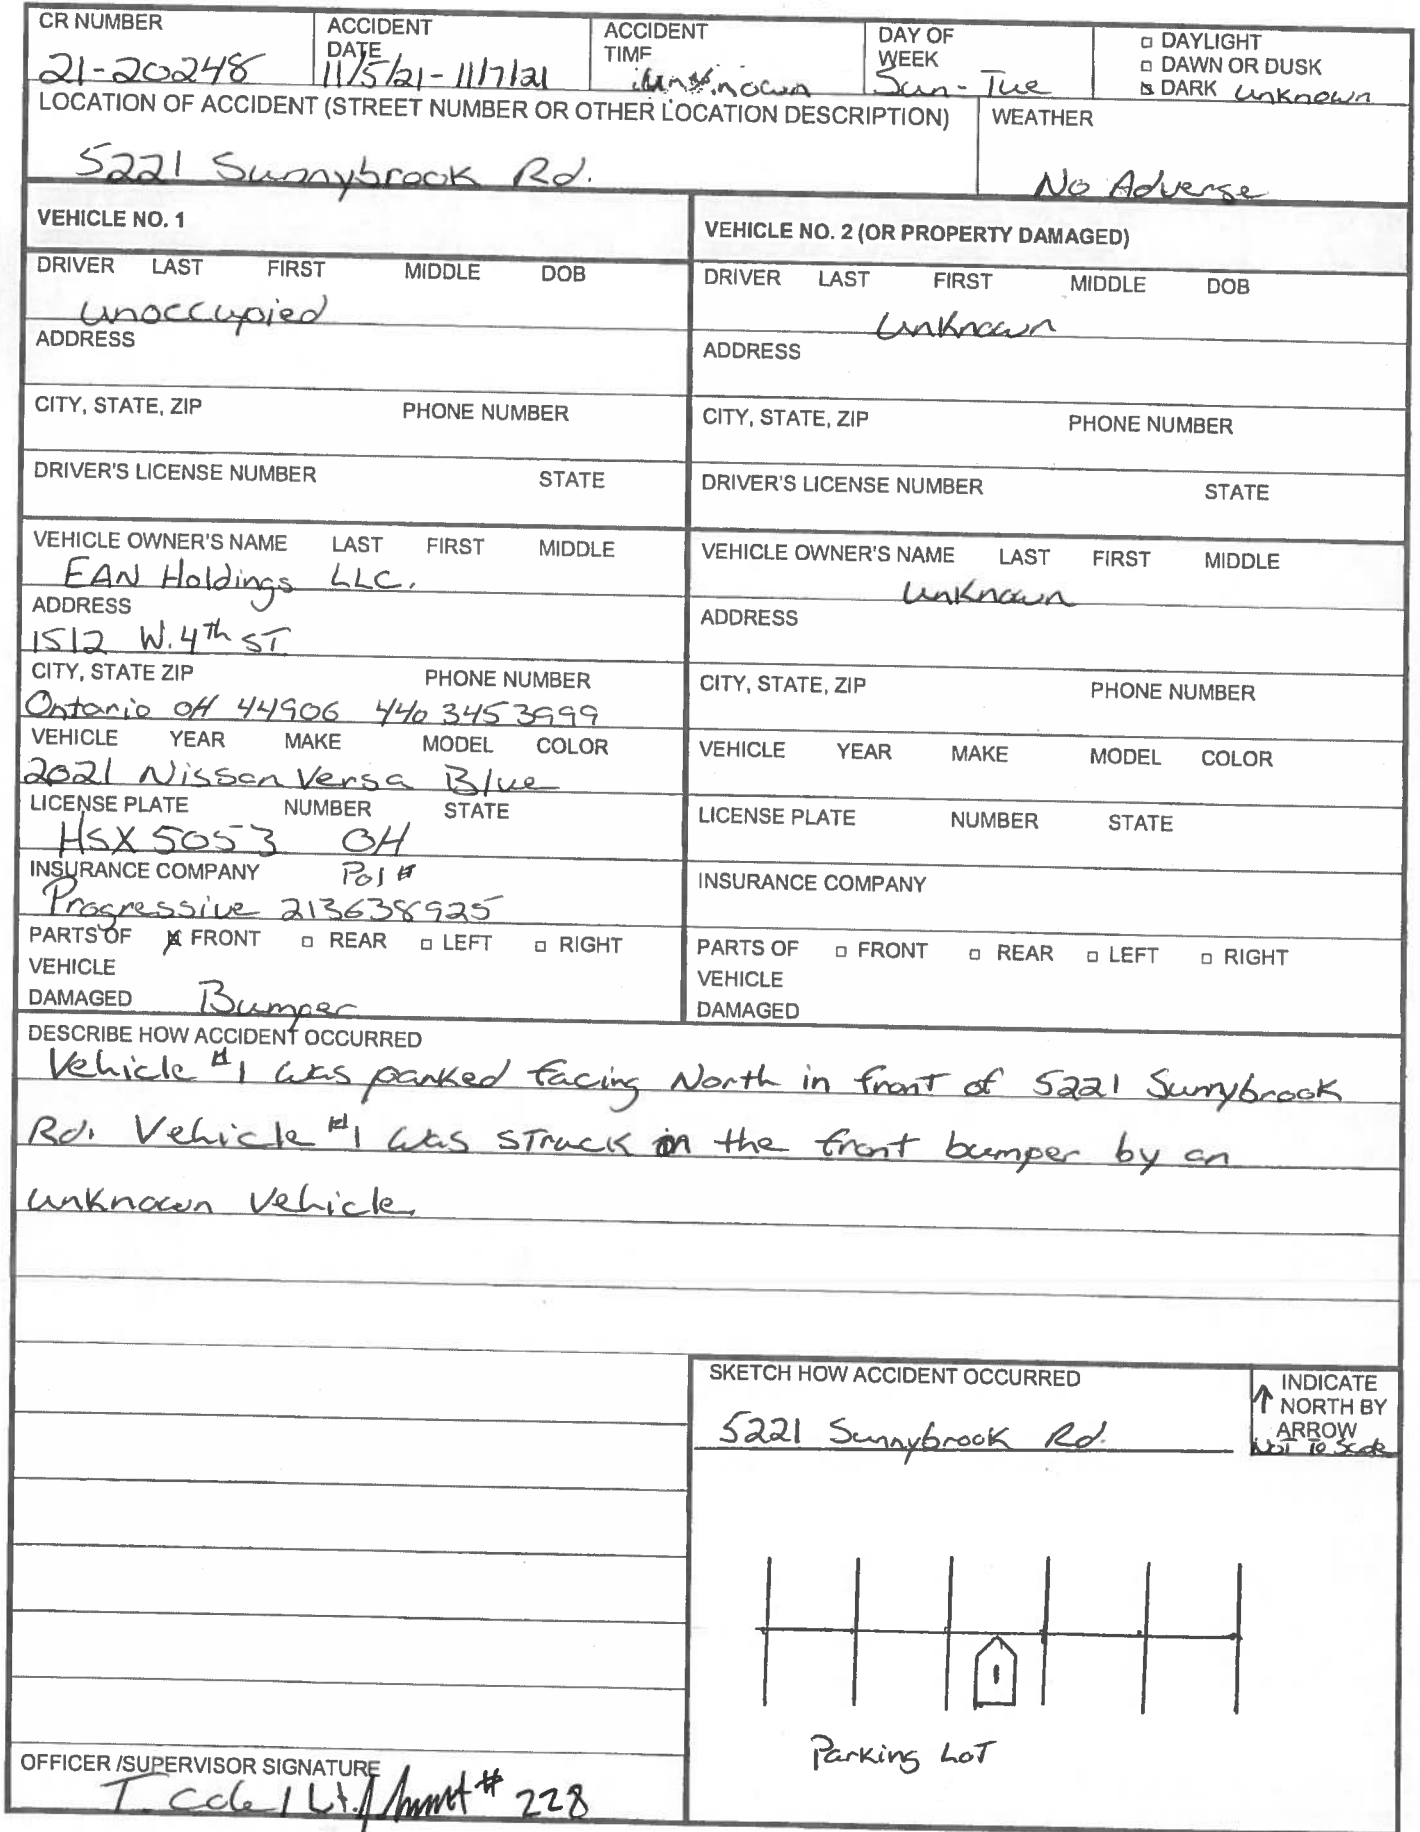 CR NUMBER
21-20248
ACCIDENT
DATE
11/5/21-11/7/21
ACCIDENT
TIME
unknown
DAY OF
WEEK
Sun - Tue
DAYLIGHT
DAWN OR DUSK
DARK unknown
LOCATION OF ACCIDENT (STREET NUMBER OR OTHER LOCATION DESCRIPTION)
5221 Sunnybrook Rd.
WEATHER
No Adverse
VEHICLE NO. 1
DRIVER LAST FIRST MIDDLE DOB
unoccupied
ADDRESS
CITY, STATE, ZIP PHONE NUMBER
DRIVER'S LICENSE NUMBER STATE
VEHICLE OWNER'S NAME LAST FIRST MIDDLE
EAN Holdings LLC.
ADDRESS
1512 W. 4th ST
CITY, STATE ZIP PHONE NUMBER
Ontario OH 44906 440 345 3999
VEHICLE YEAR MAKE MODEL COLOR
2021 Nissan Versa Blue
LICENSE PLATE NUMBER STATE
HSX 5053 OH
INSURANCE COMPANY Pol #
Progressive 213638925
PARTS OF FRONT REAR LEFT RIGHT
VEHICLE
DAMAGED Bumper
VEHICLE NO. 2 (OR PROPERTY DAMAGED)
DRIVER LAST FIRST MIDDLE DOB
unknown
ADDRESS
CITY, STATE, ZIP PHONE NUMBER
DRIVER'S LICENSE NUMBER STATE
VEHICLE OWNER'S NAME LAST FIRST MIDDLE
unknown
ADDRESS
CITY, STATE, ZIP PHONE NUMBER
VEHICLE YEAR MAKE MODEL COLOR
LICENSE PLATE NUMBER STATE
INSURANCE COMPANY
PARTS OF FRONT REAR LEFT RIGHT
VEHICLE
DAMAGED
DESCRIBE HOW ACCIDENT OCCURRED
Vehicle #1 was parked facing North in front of 5221 Sunnybrook
Rd. Vehicle #1 was struck in the front bumper by an
unknown vehicle.
SKETCH HOW ACCIDENT OCCURRED
5221 Sunnybrook Rd.
INDICATE
NORTH BY
ARROW
Not To Scale
1
Parking Lot
OFFICER /SUPERVISOR SIGNATURE
T. Cole / Lt. # 228